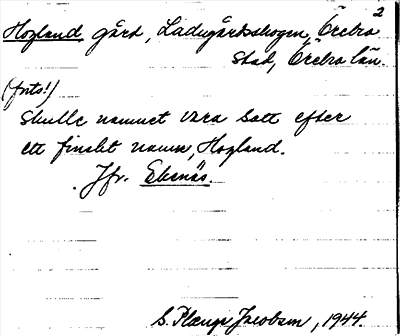 2
Hogland gård, Ladugårdsskogen, Örebro
stad, Örebro län.
(forts!)
Skulle namnet vara satt efter
ett finskt namn, Hogland.
Jfr. Ekenäs.
S. Plange Jacobson, 1944.